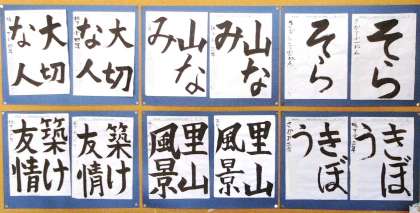 そら
そら
山な
み
山な
み
大切
な人
大切
な人
きぼ
う
きぼ
う
里山
風景
里山
風景
築け
友情
築け
友情